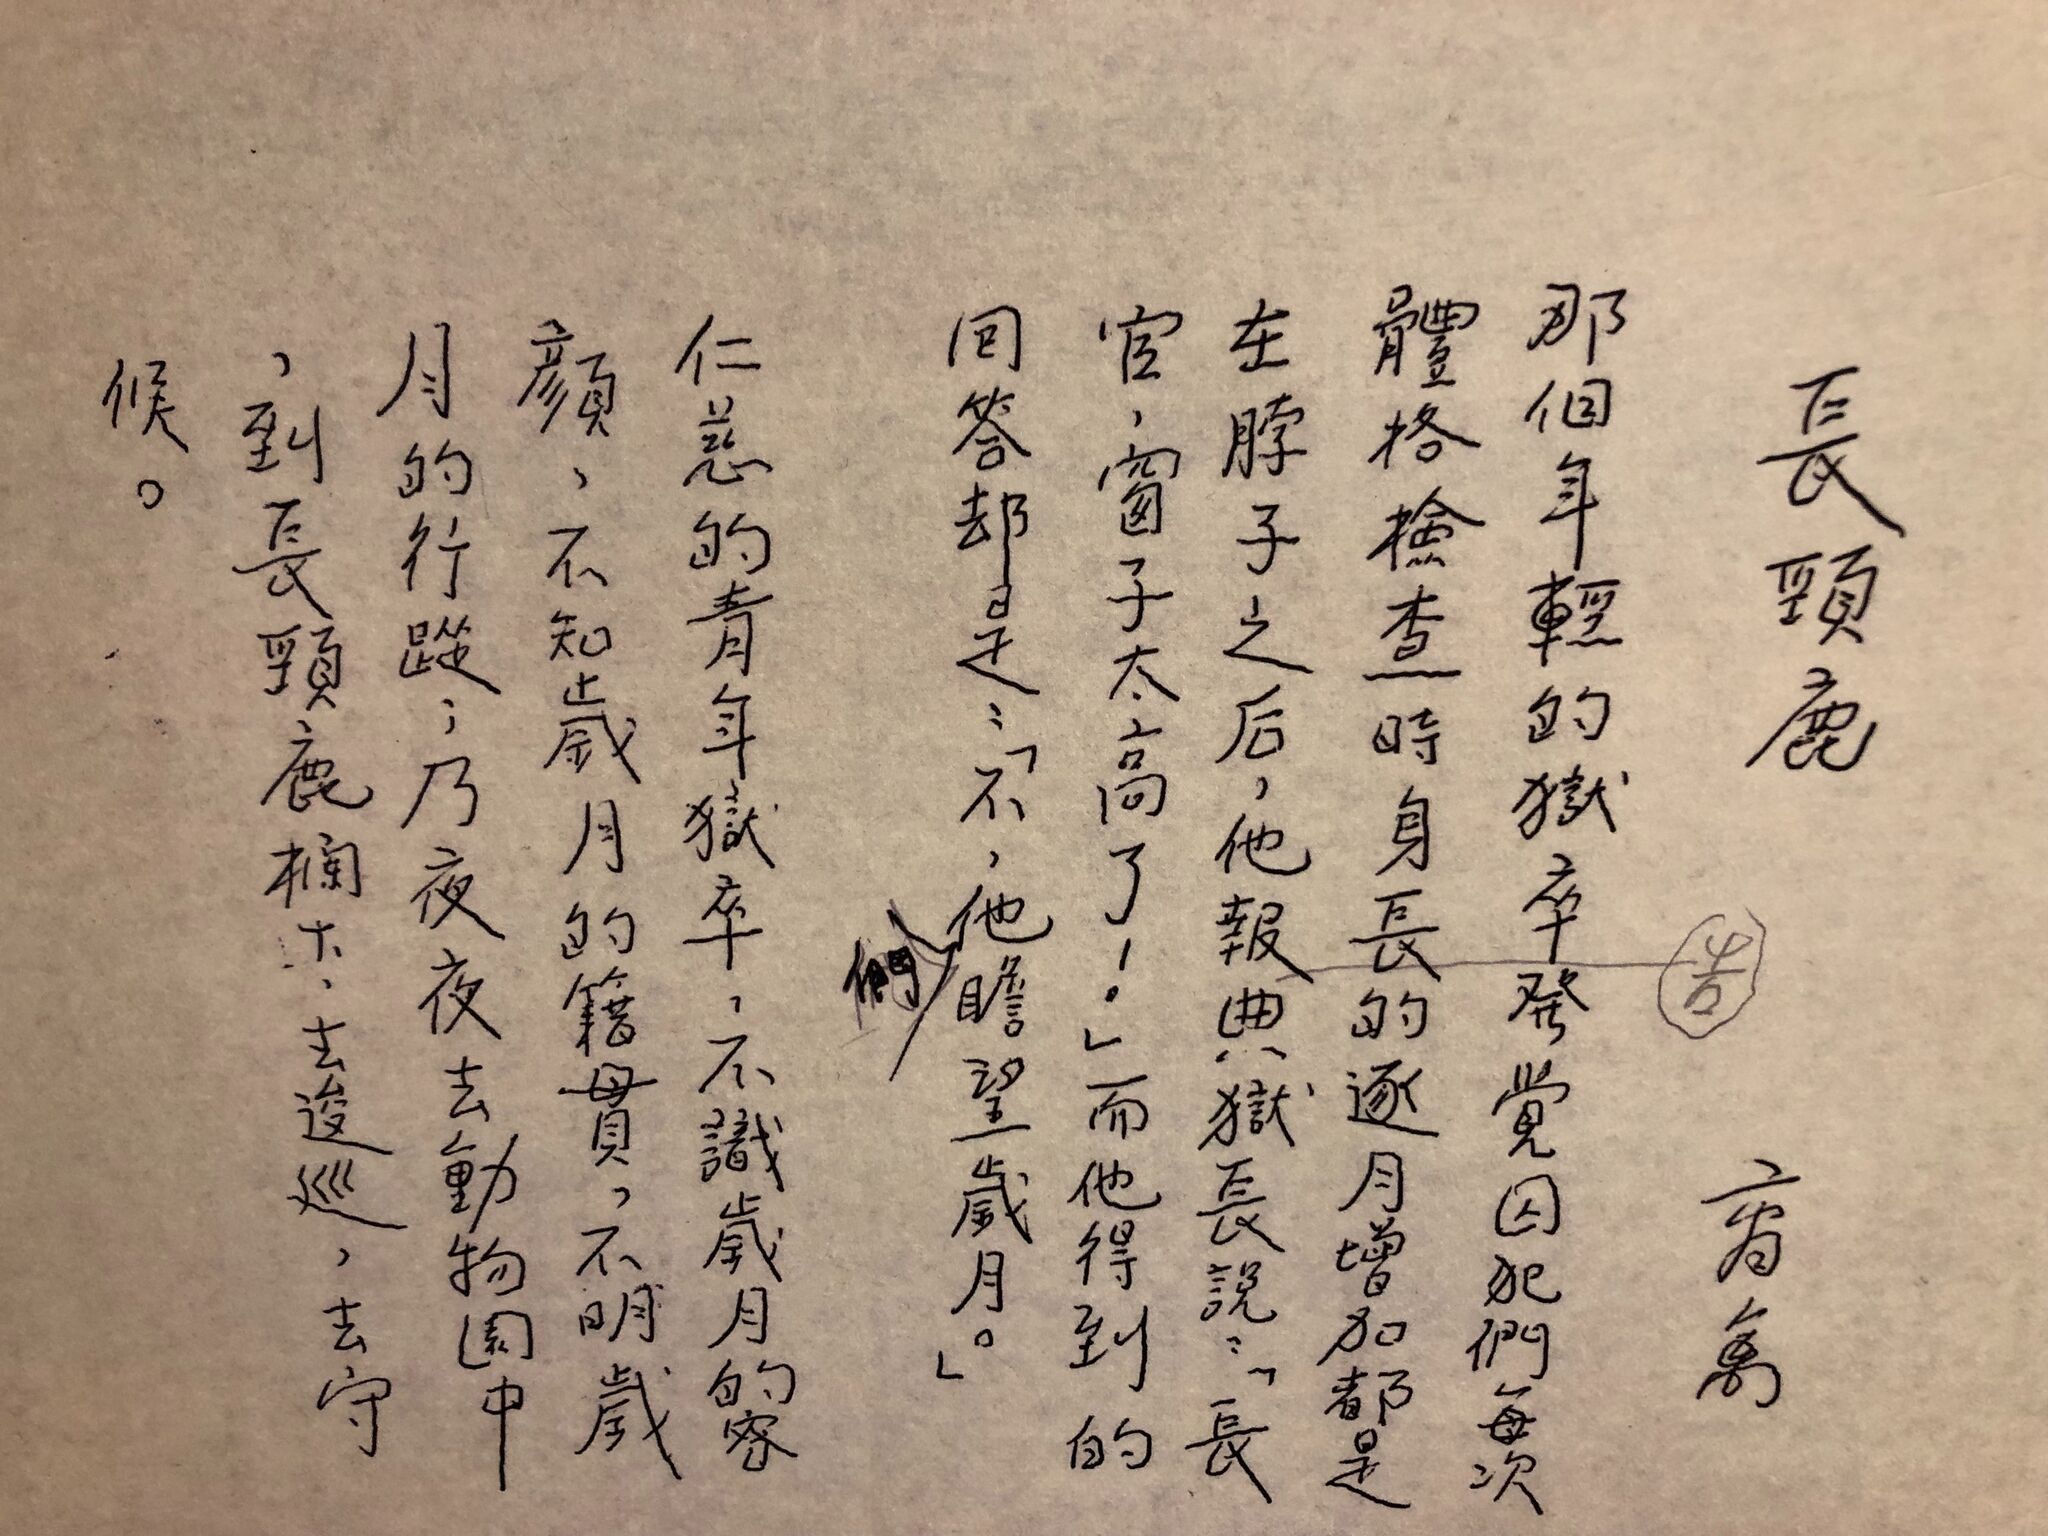 長頸鹿
商禽
那個年輕的獄卒發覺囚犯們每次
體格檢查時身長的逐月增加都是
在脖子之后，他報典獄長說：「長
告
官，窗子太高了！」而他得到的
回答却是：「不，他瞻望歲月。」
們
仁慈的青年獄卒，不識歲月的容
顏，不知歲月的籍貫，不明歲
月的行蹤；乃夜夜去動物園中
，到長頸鹿欄下，去逡巡，去守
候。